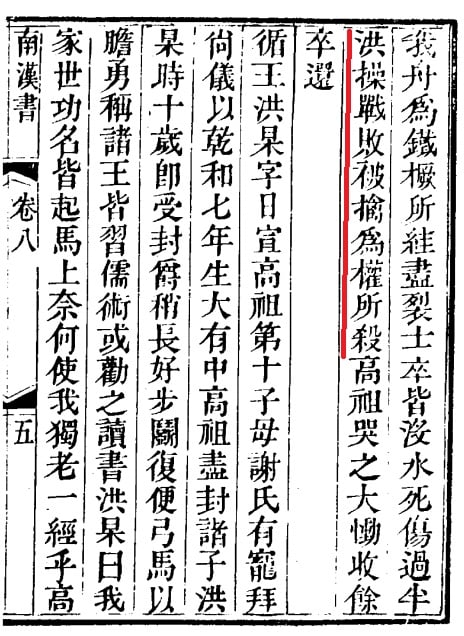 我舟爲鐵橛所絓盡裂士卒皆沒水死傷過半
洪操戰敗被擒爲權所殺高祖哭之大慟收餘
卒還
循王洪杲字日宣高祖第十子母謝氏有寵拜
尚儀以乾和七年生大有中高祖盡封諸子洪
杲時十歲卽受封爵稍長好步鬭復便弓馬以
膽勇稱諸王皆習儒術或勸之讀書洪杲曰我
家世功名皆起馬上奈何使我獨老一經乎高
南漢書
卷八
五